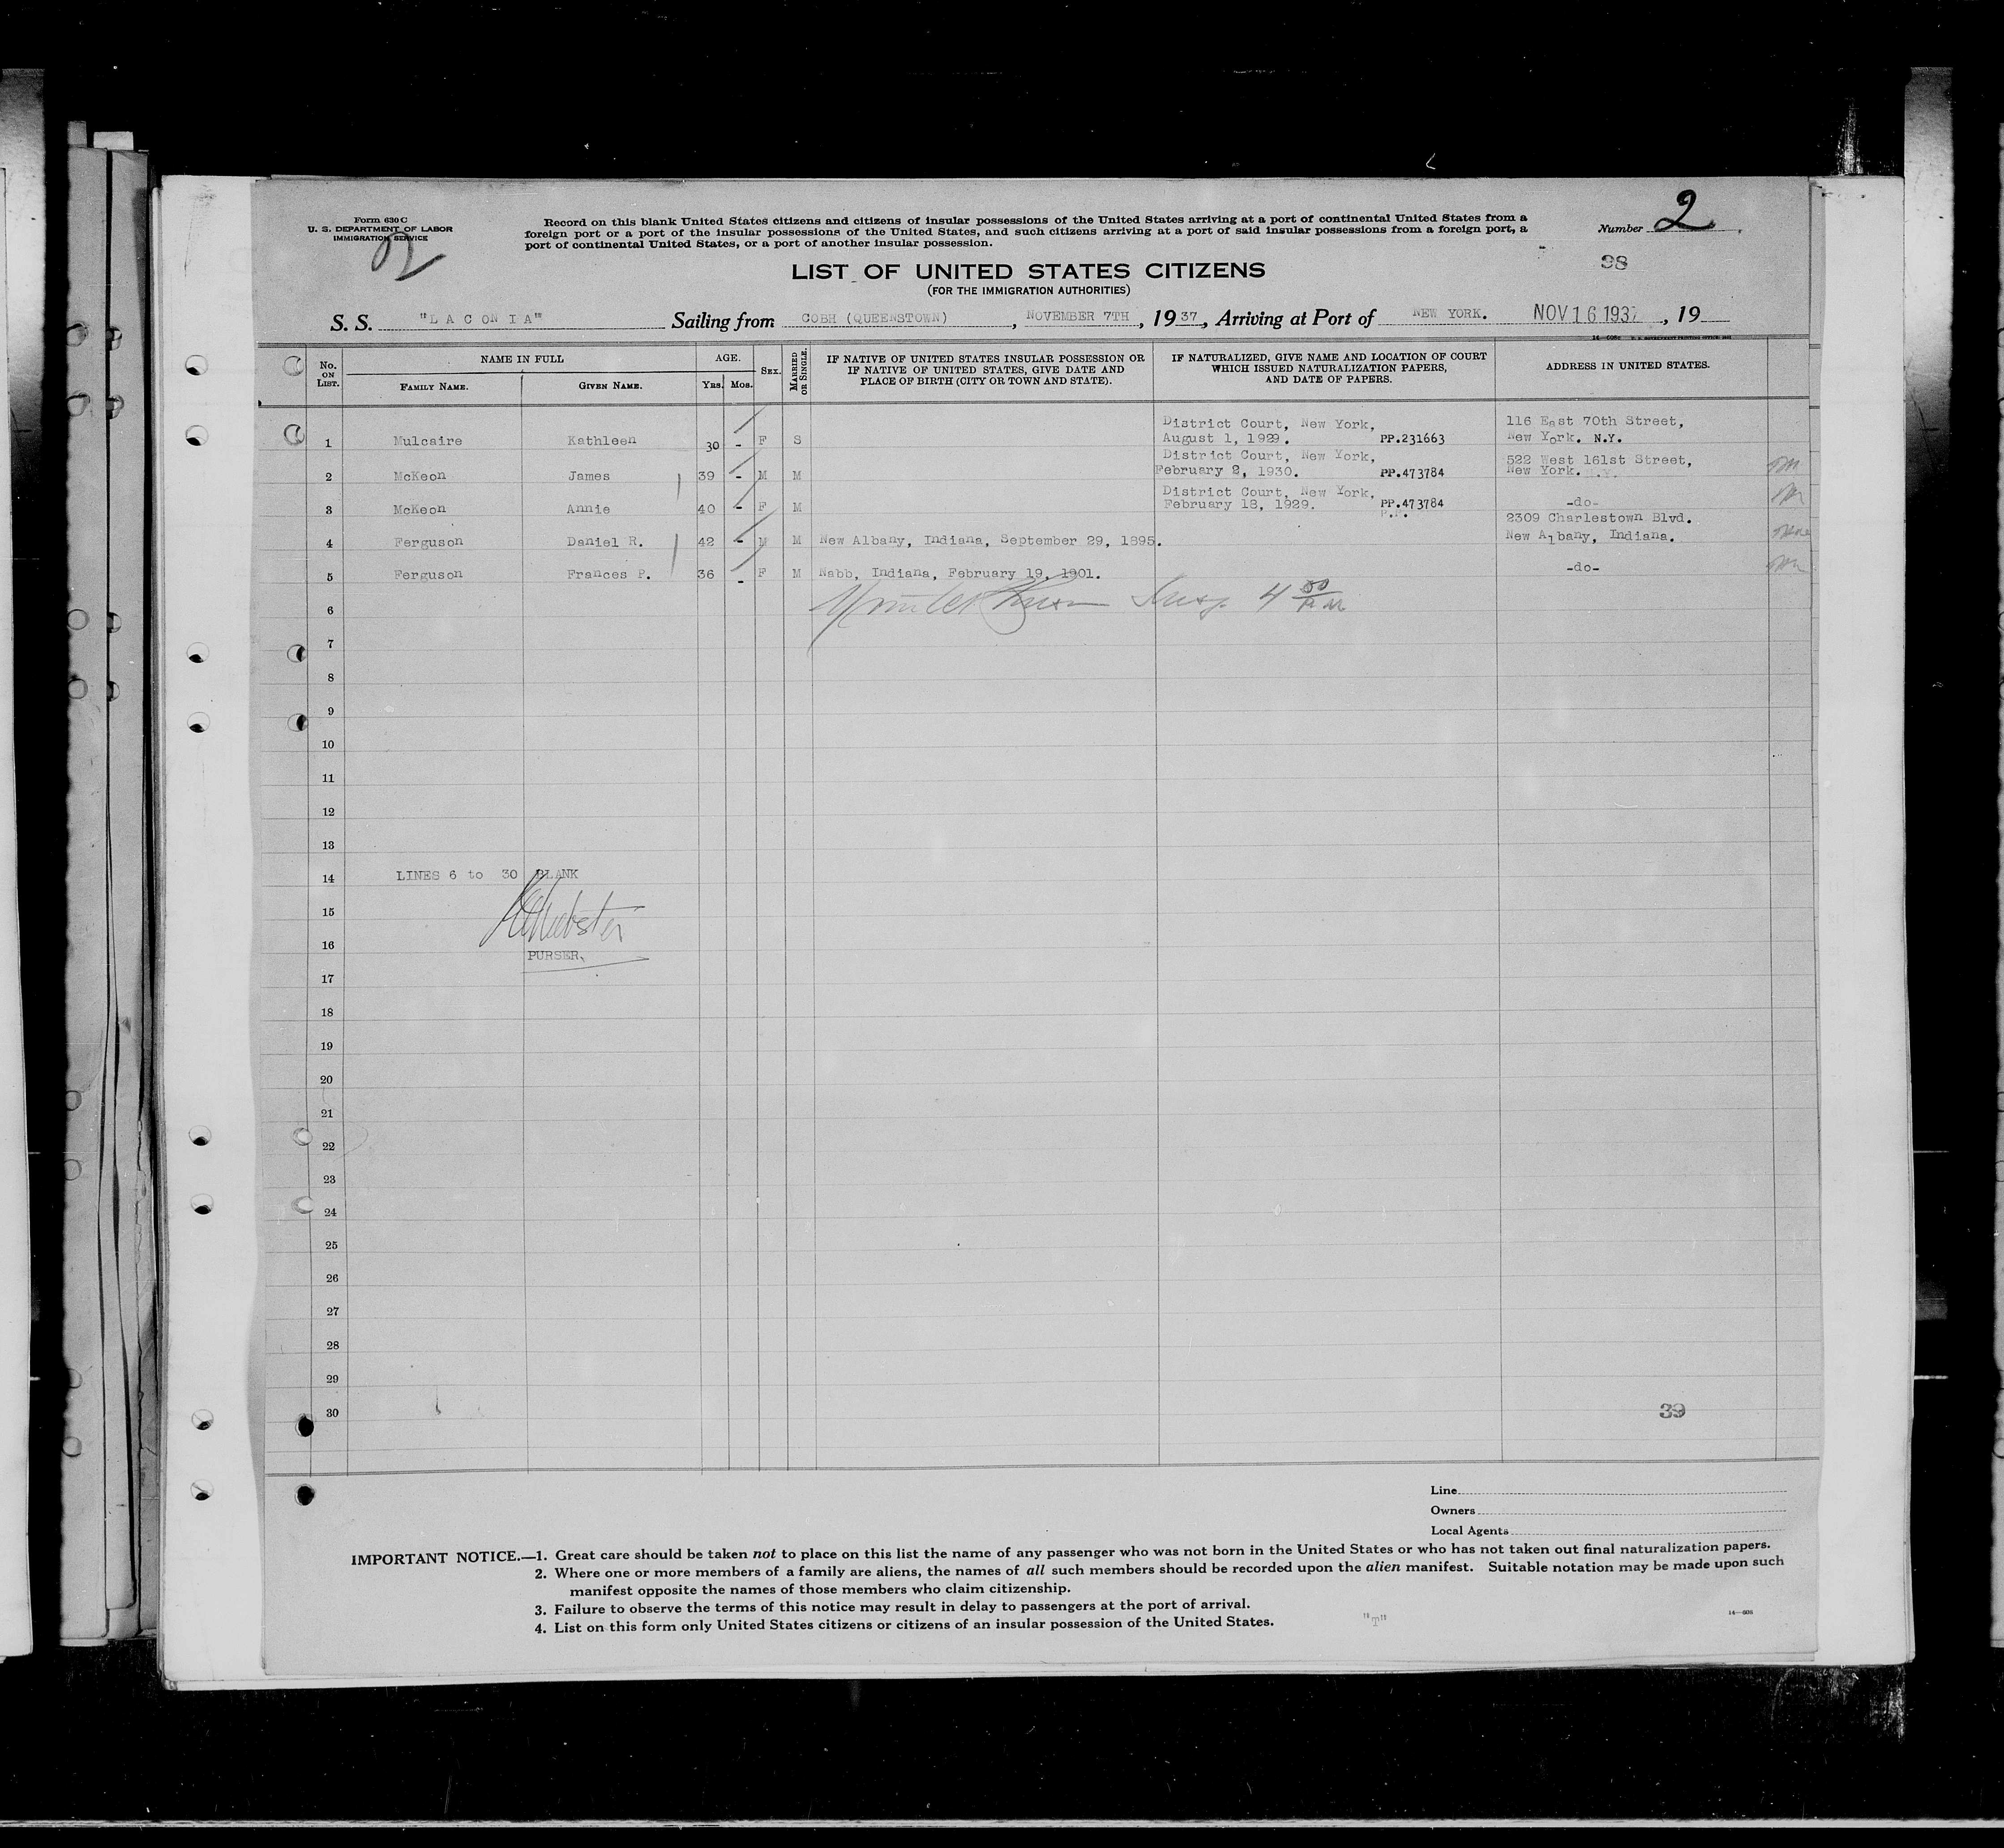 Form 630 C
U. S. DEPARTMENT OF LABOR
IMMIGRATION SERVICE
Record on this blank United States citizens and citizens of insular possessions of the United States arriving at a port of continental United States from a
foreign port or a port of the insular possessions of the United States, and such citizens arriving at a port of said insular possessions from a foreign port, a
port of continental United States, or a port of another insular possession.
Number 2
98
LIST OF UNITED STATES CITIZENS
(FOR THE IMMIGRATION AUTHORITIES)
S. S. "L A C O N I A" Sailing from COBH (QUEENSTOWN), NOVEMBER 7TH, 1937, Arriving at Port of NEW YORK. NOV 16 1937, 19
No. ON LIST. NAME IN FULL AGE. SEX. MARRIED OR SINGLE. IF NATIVE OF UNITED STATES INSULAR POSSESSION OR IF NATIVE OF UNITED STATES, GIVE DATE AND PLACE OF BIRTH (CITY OR TOWN AND STATE). IF NATURALIZED, GIVE NAME AND LOCATION OF COURT WHICH ISSUED NATURALIZATION PAPERS, AND DATE OF PAPERS. ADDRESS IN UNITED STATES.
FAMILY NAME. GIVEN NAME. YRS. MOS.
1 Mulcaire Kathleen 30 - F S District Court, New York, August 1, 1929. PP.231663 116 East 70th Street, New York. N.Y.
2 McKeon James 39 - M M District Court, New York, February 2, 1930. PP.473784 522 West 161st Street, New York. N.Y.
3 McKeon Annie 40 - F M District Court, New York, February 18, 1929. PP.473784 -do-
4 Ferguson Daniel R. 42 - M M New Albany, Indiana, September 29, 1895. 2309 Charlestown Blvd. New Albany, Indiana.
5 Ferguson Frances P. 36 - F M Nabb, Indiana, February 19, 1901. -do-
6 Insp. 4 30 P.M
7
8
9
10
11
12
13
14 LINES 6 to 30 BLANK
15 Webster
16 PURSER.
17
18
19
20
21
22
23
24
25
26
27
28
29
30 39
Line
Owners
Local Agents
IMPORTANT NOTICE.—1. Great care should be taken not to place on this list the name of any passenger who was not born in the United States or who has not taken out final naturalization papers.
2. Where one or more members of a family are aliens, the names of all such members should be recorded upon the alien manifest. Suitable notation may be made upon such
manifest opposite the names of those members who claim citizenship.
3. Failure to observe the terms of this notice may result in delay to passengers at the port of arrival.
4. List on this form only United States citizens or citizens of an insular possession of the United States.
"T"
14—608